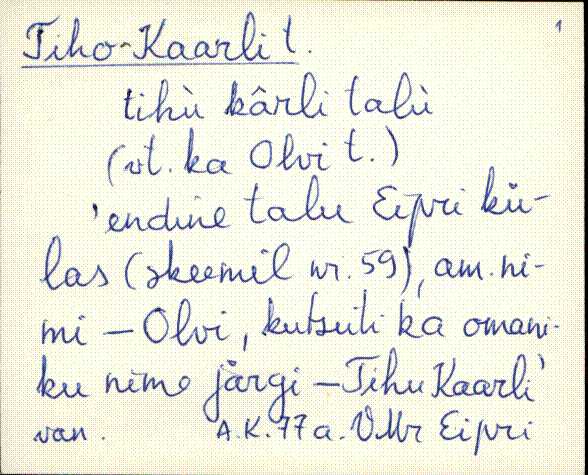 1
Tiho-Kaarli t.
tihù kârli talù
(vt. ka Olvi t.)
'endine talu Eipri kü-
las (skeemil nr. 59), am. ni-
mi – Olvi, kutsuti ka omani-
ku nime järgi – Tihu Kaarli'
van. A.K. 77 a. VMr Eipri